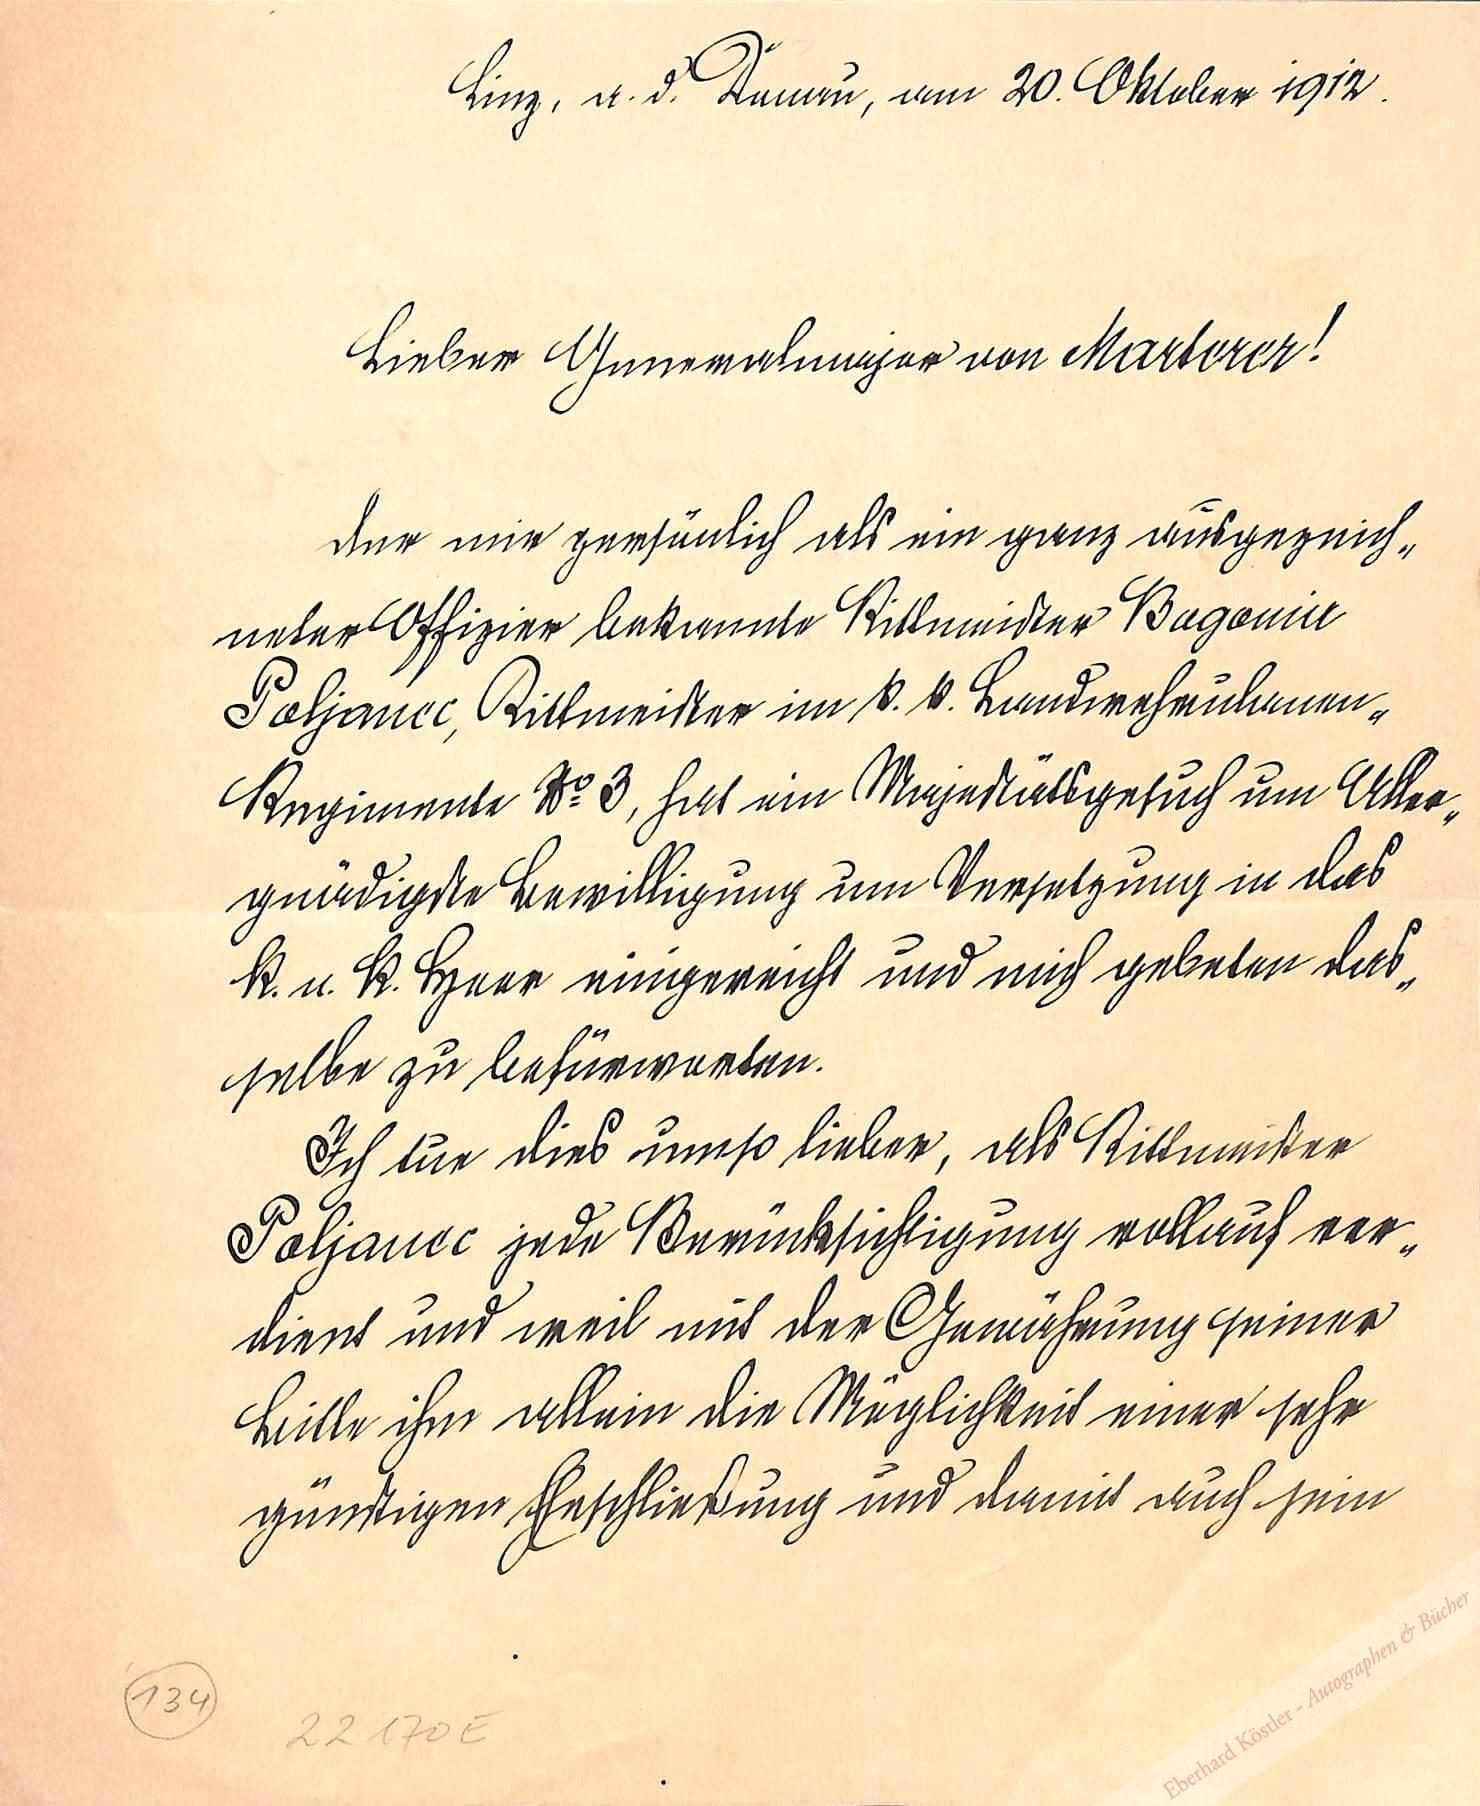 Linz, a. d. Donau, am 20. Oktober 1912.
Lieber Generalmajor von Marterer!
Der mir persönlich als ein ganz ausgezeich-
neter Offizier bekannte Rittmeister Bogomir
Poljanec, Rittmeister im k. k. Landwehrulanen-
Regimente No 3, hat ein Majestätsgesuch um Aller-
gnädigste Bewilligung um Versetzung in das
k. u. k. Heer eingereicht und mich gebeten das-
selbe zu befürworten.
Ich tue dies umso lieber, als Rittmeister
Poljanec jede Berücksichtigung vollauf ver-
dient und weil mit der Gewährung seiner
Bitte ihm allein die Möglichkeit einer sehr
günstigen Eheschließung und damit auch sein
134
22170E
Eberhard Köstler - Autographen & Bücher